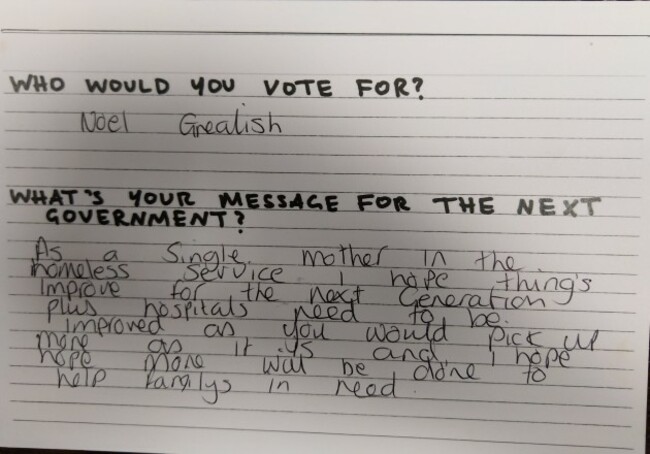 WHO WOULD YOU VOTE FOR?
Noel Grealish
WHAT'S YOUR MESSAGE FOR THE NEXT
GOVERNMENT?
As a Single mother in the
homeless service I hope thing's
improve for the next Generation
plus hospitals need to be
improved as you would pick up
more as it is and I hope
hope more will be done to
help familys in need.